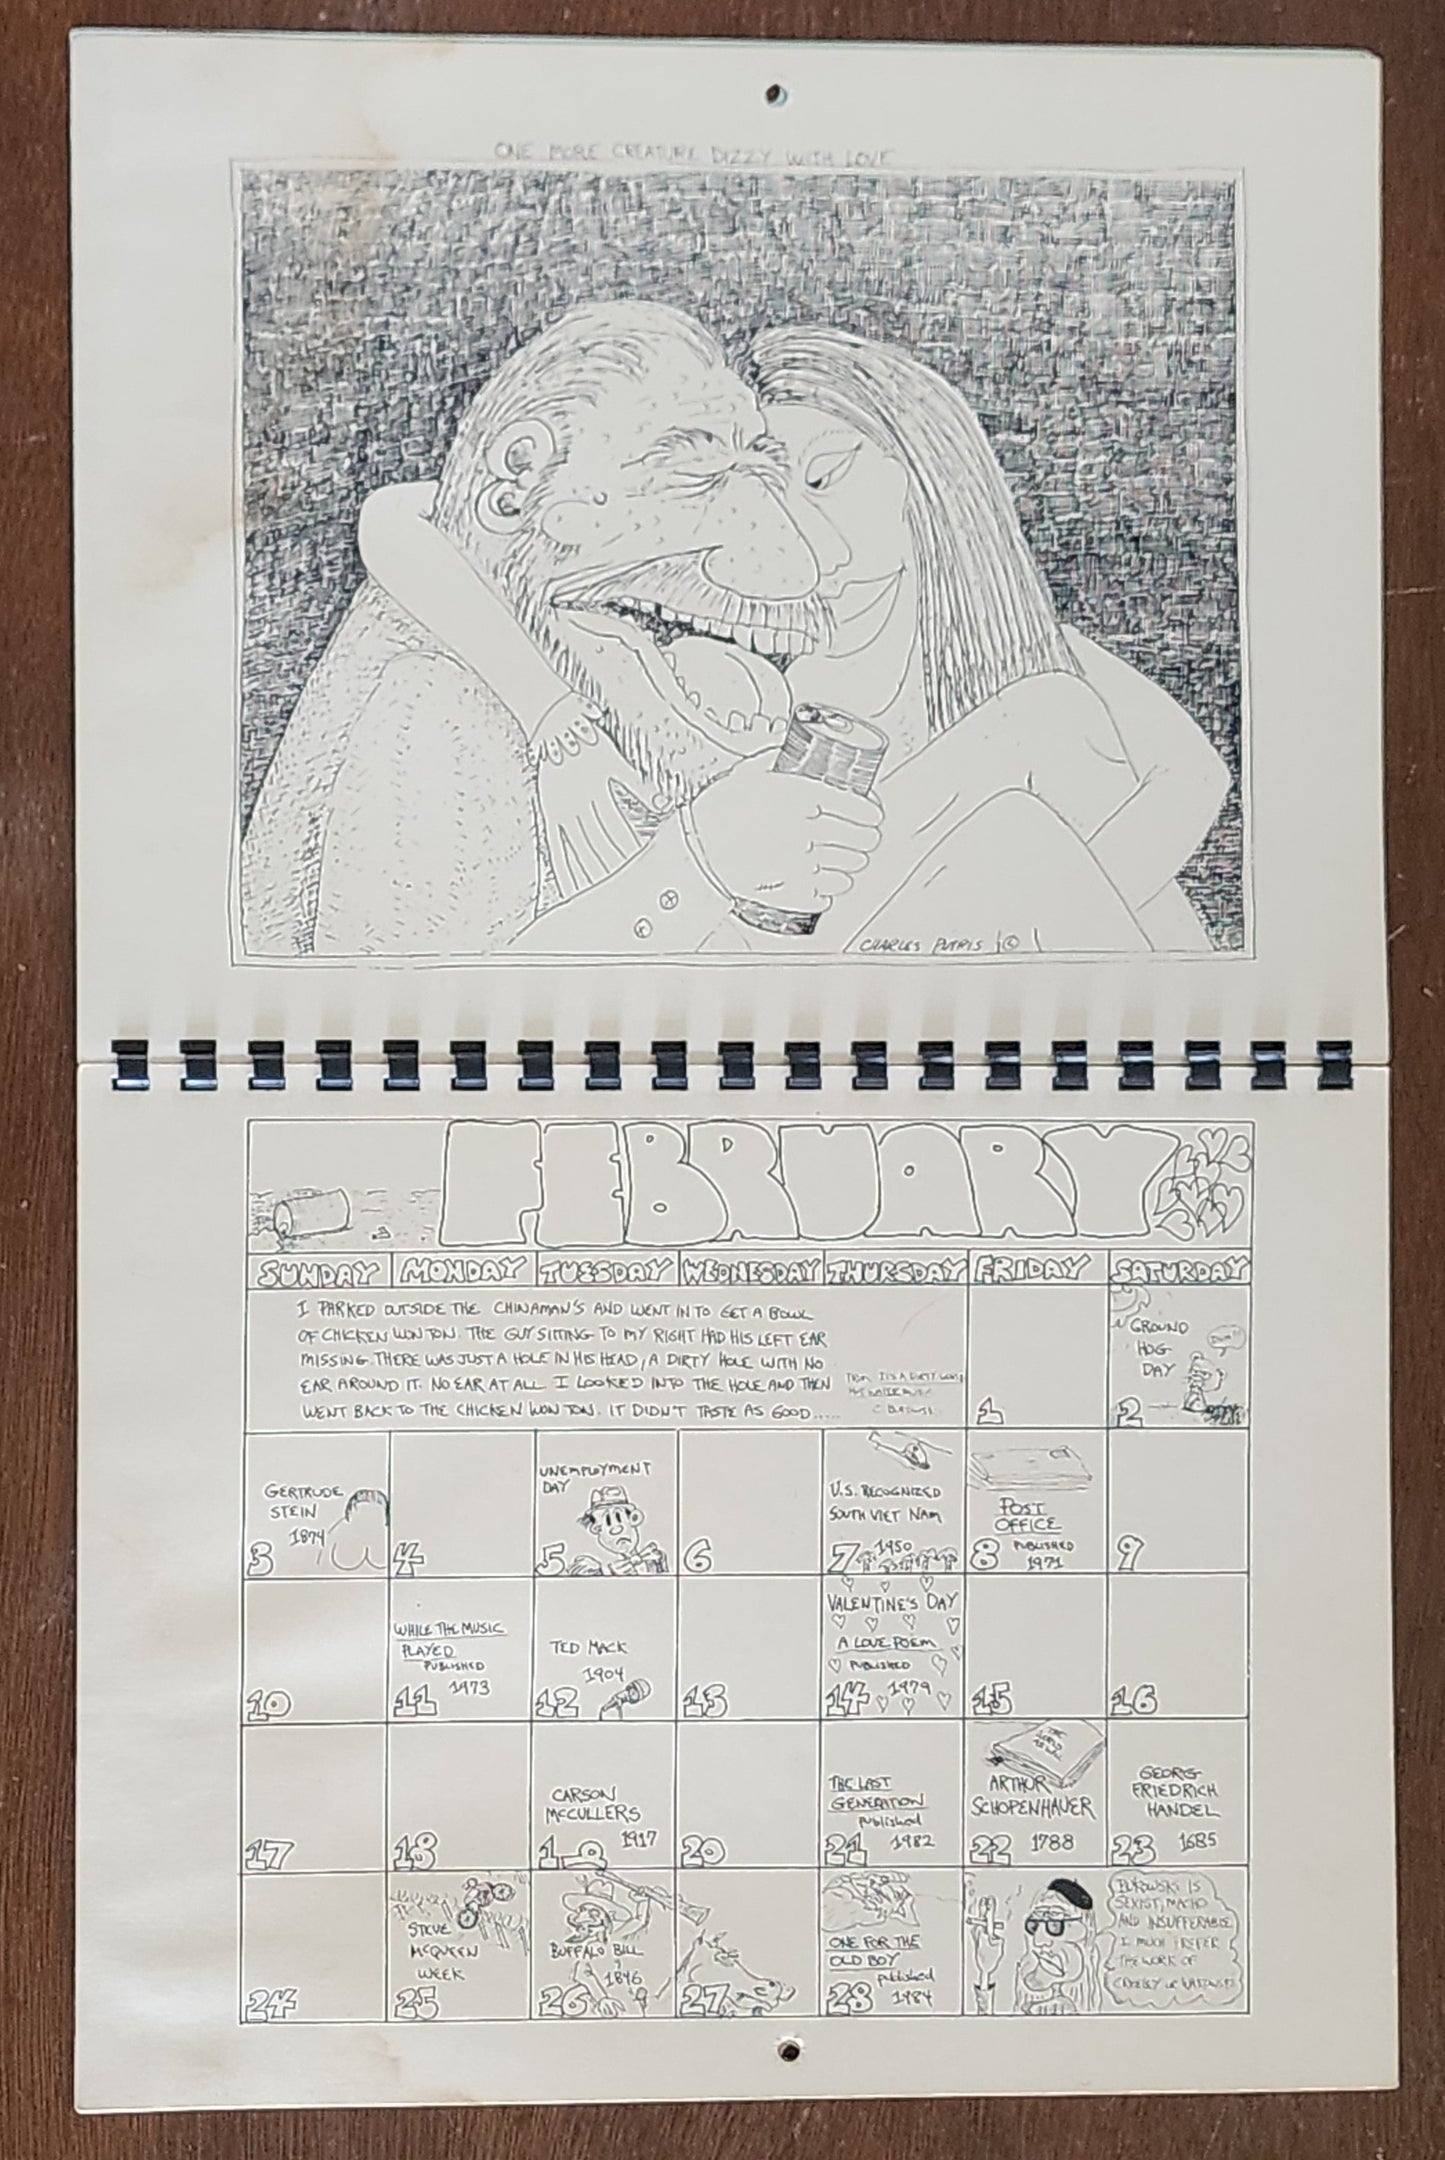 ONE MORE CREATURE DIZZY WITH LOVE
CHARLES ©
FEBRUARY
SUNDAY MONDAY TUESDAY WEDNESDAY THURSDAY FRIDAY SATURDAY
I PARKED OUTSIDE THE CHINAMAN'S AND WENT IN TO GET A BOWL
OF CHICKEN WON TON. THE GUY SITTING TO MY RIGHT HAD HIS LEFT EAR
MISSING. THERE WAS JUST A HOLE IN HIS HEAD, A DIRTY HOLE WITH NO
EAR AROUND IT. NO EAR AT ALL. I LOOKED INTO THE HOLE AND THEN
WENT BACK TO THE CHICKEN WON TON. IT DIDN'T TASTE AS GOOD.....
IT'S A DIRTY WORLD
1
GROUND
HOG
DAY
2
GERTRUDE
STEIN
1874
3
4
UNEMPLOYMENT
DAY
5
6
U.S. RECOGNIZED
SOUTH VIET NAM
1950
7
POST
OFFICE
PUBLISHED
1971
8
9
10
WHILE THE MUSIC
PLAYED
PUBLISHED
1973
11
TED MACK
1904
12
13
VALENTINE'S DAY
A LOVE POEM
PUBLISHED
1979
14
15
16
17
18
CARSON
McCULLERS
1917
19
20
THE LAST
GENERATION
published
1982
21
THE
WORLD
AS WILL
ARTHUR
SCHOPENHAUER
1788
22
GEORG
FRIEDRICH
HANDEL
1685
23
24
STEVE
McQUEEN
WEEK
25
BUFFALO BILL
1846
26
27
ONE FOR THE
OLD BOY
published
1984
28
BUKOWSKI IS
SEXIST, MACHO
AND INSUFFERABLE
I MUCH PREFER
THE WORK OF
CREELEY